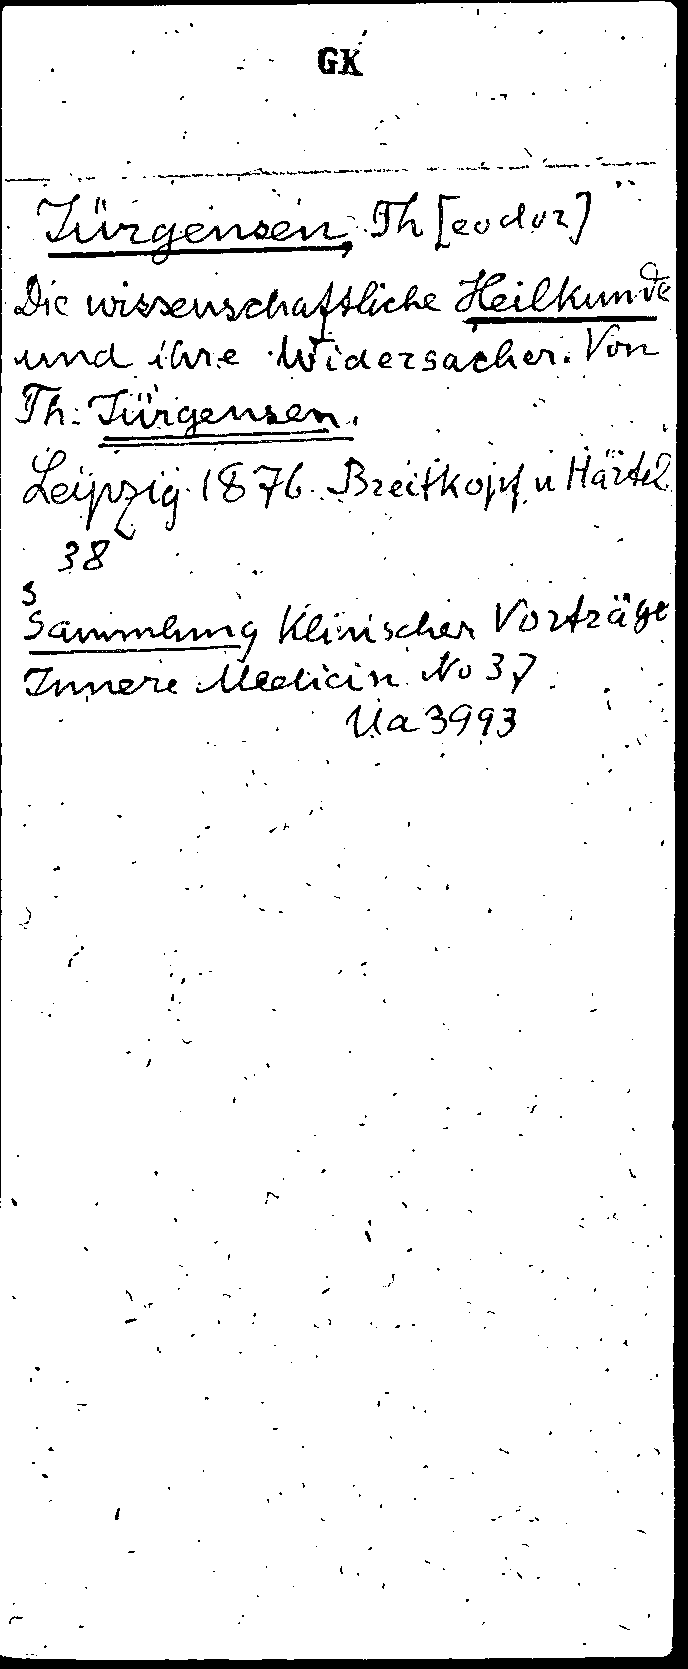 GK
Jürgensen, Th[eodor]
Die wissenschaftliche Heilkunde
und ihre Widersacher. Von
Th. Jürgensen.
Leipzig 1876. Breitkopf u Härtel
38
S
Sammlung Klinischer Vorträge
Innere Medicin No 37.
Ua 3993